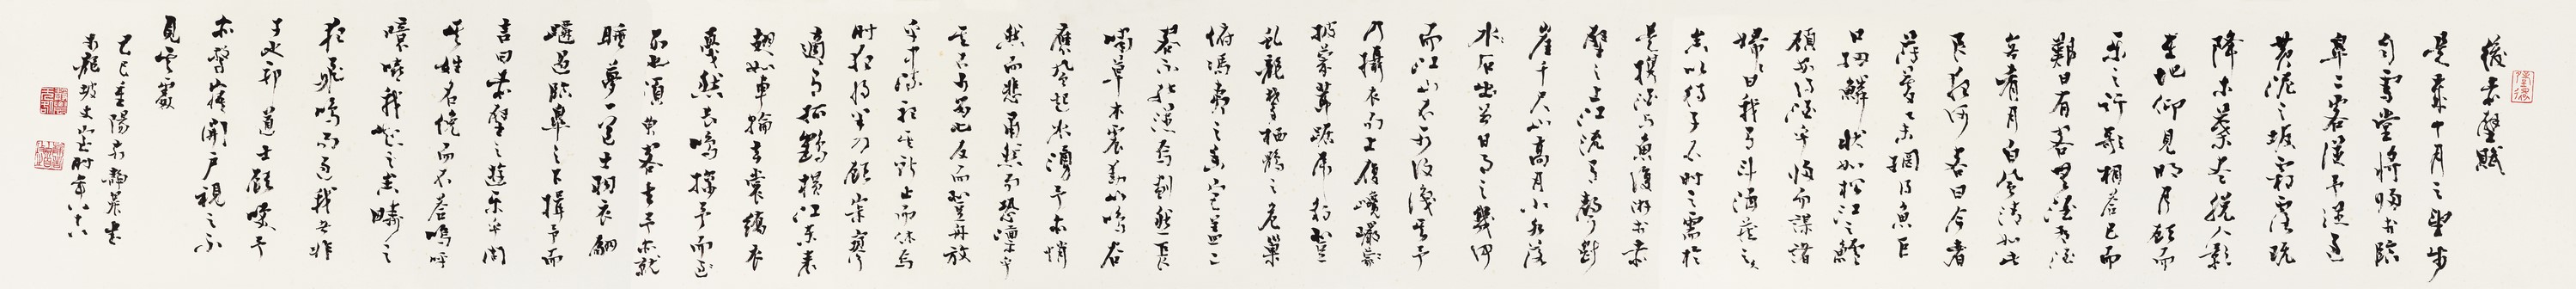 後赤壁賦
是歲十月之望步
自雪堂將歸於臨
皋二客從予過
黃泥之坂霜露既
降木葉盡脫人影
在地仰見明月顧而
樂之行歌相答已而
歎曰有客無酒有酒
無肴月白風清如此
良夜何客曰今者
薄暮舉網得魚巨
口細鱗狀如松江之鱸
顧安所得酒乎歸而謀諸
婦婦曰我有斗酒藏之
久以待子不時之需於
是攜酒與魚復游於赤
壁之下江流有聲斷
岸千尺山高月小水落
水石出曾日月之幾何
而江山不可復識矣予
乃攝衣而上履巉巖
披蒙茸踞虎豹登
虬龍攀棲鶻之危巢
俯馮夷之幽宮蓋二
客不能從焉劃然長
嘯草木震動山鳴谷
應風起水湧予亦悄
然而悲肅然而恐凜乎
其不可留也反而登舟放
乎中流聽其所止而休焉
時夜將半四顧寂寥
適有孤鶴橫江東來
翅如車輪玄裳縞衣
戛然長鳴掠予舟而西
也須臾客去予亦就
睡夢一道士羽衣翩
躚過臨皋之下揖予而
言曰赤壁之遊樂乎問
其姓名俛而不答嗚呼
噫嘻我知之矣疇昔之
夜飛鳴而過我者非
子也耶道士顧笑予
亦驚寤開戶視之不
見其處
己巳重陽
坡丈室時年八十六